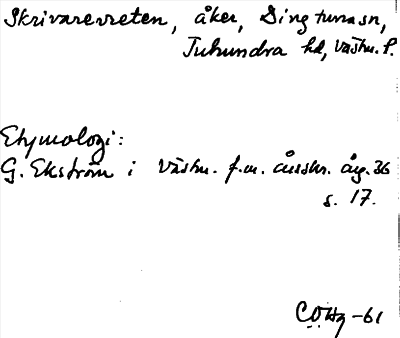 Skrivarevreten, åker, Dingtuna sn,
Tuhundra hd, Västm. l.
Etymologi:
G. Ekström i Västm. f.m. årsskr. årg. 36
s. 17.
COHg -61